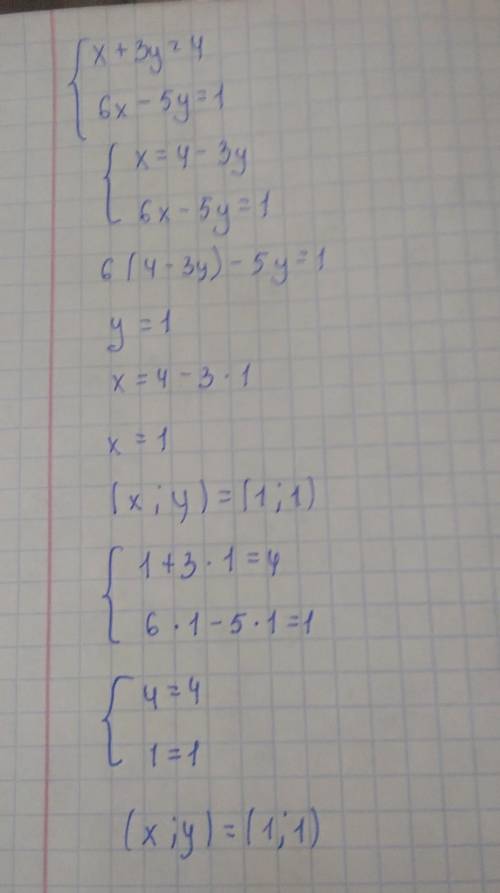 x + 3y = 4
6x - 5y = 1
x = 4 - 3y
6x - 5y = 1
6(4 - 3y) - 5y = 1
y = 1
x = 4 - 3 · 1
x = 1
(x ; y) = (1 ; 1)
1 + 3 · 1 = 4
6 · 1 - 5 · 1 = 1
4 = 4
1 = 1
(x ; y) = (1 ; 1)